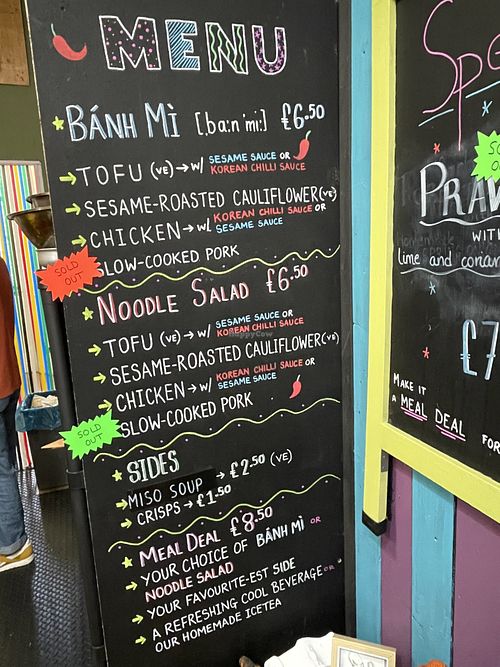 MENU
BÁNH MÌ [ba:n'mi:] £6.50
TOFU (VE) → w/ SESAME SAUCE OR KOREAN CHILLI SAUCE
SESAME-ROASTED CAULIFLOWER (VE)
CHICKEN → w/ KOREAN CHILLI SAUCE OR SESAME SAUCE
SLOW-COOKED PORK
SOLD OUT
NOODLE SALAD £6.50
TOFU (VE) → w/ SESAME SAUCE OR KOREAN CHILLI SAUCE
HappyCow
SESAME-ROASTED CAULIFLOWER (VE)
CHICKEN → w/ KOREAN CHILLI SAUCE OR SESAME SAUCE
SLOW-COOKED PORK
SOLD OUT
SIDES
MISO SOUP → £2.50 (VE)
CRISPS → £1.50
MEAL DEAL £8.50
YOUR CHOICE OF BÁNH MÌ OR
NOODLE SALAD
YOUR FAVOURITE-EST SIDE
A REFRESHING COOL BEVERAGE OR
OUR HOMEMADE ICETEA
Spe
SO
O
PRAW
WITH
lime and corian
£7
MAKE IT
A MEAL DEAL FOR